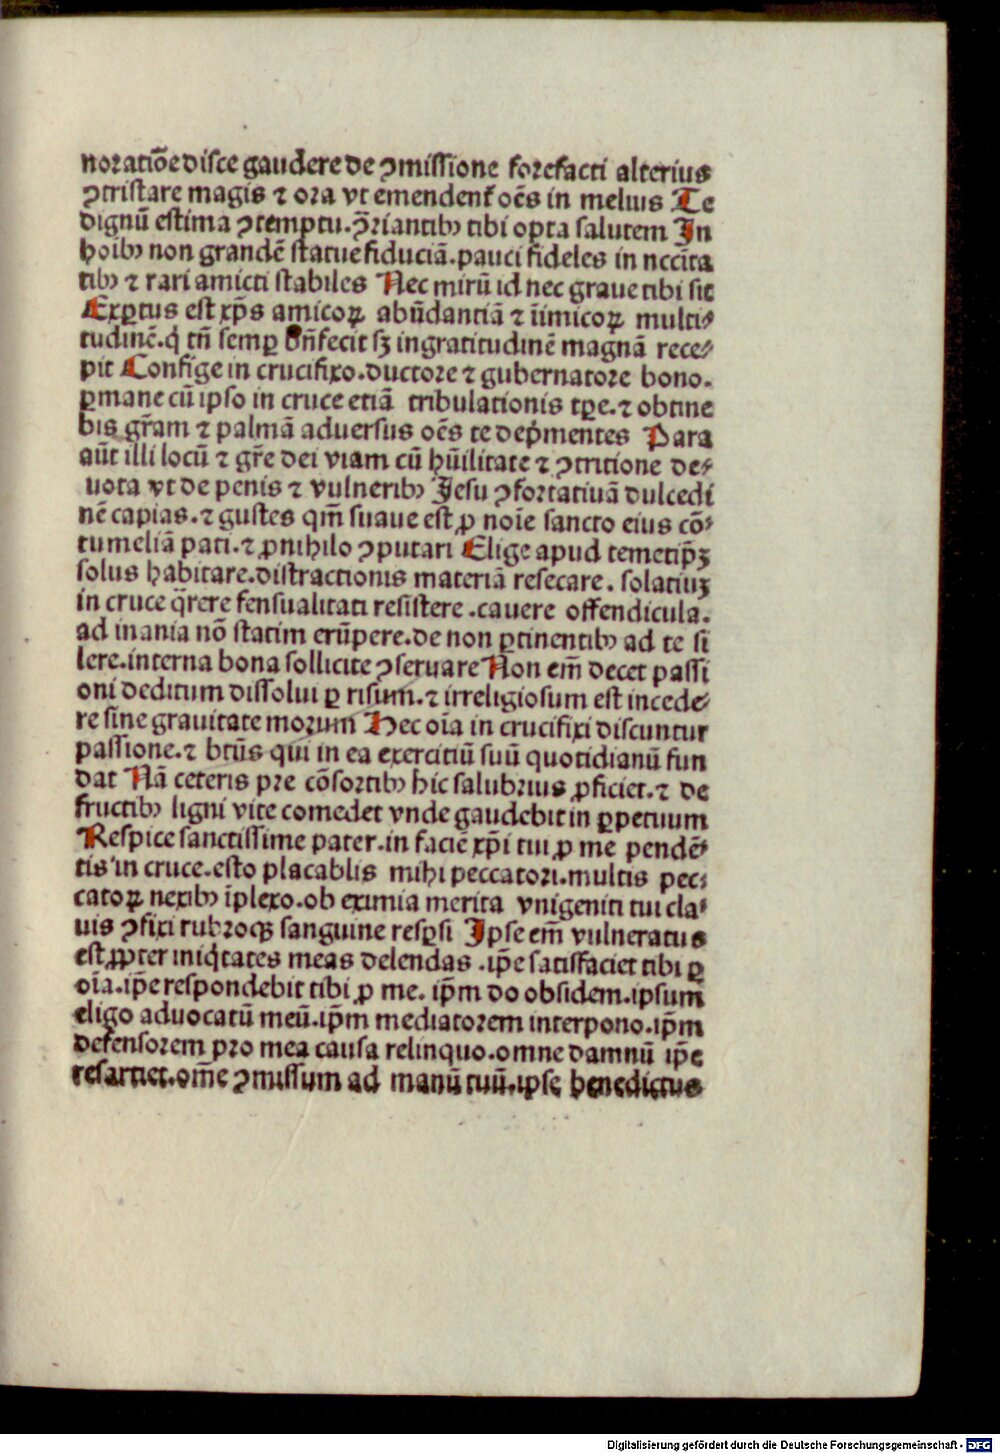 noratiõe disce gaudere de ꝯmissione forefacti alterius
ꝯtristare magis ⁊ ora vt emendent᷑ oẽs in melius Te
dignũ estima ꝯtemptu. ꝯ̃riantibꝫ tibi opta salutem In
hoĩbꝫ non grandẽ statue fiduciã. pauci fideles in nccĩta
tibꝫ ⁊ rari amicti stabiles Nec mirũ id nec graue tibi sit
Exꝑtus est xp̃s amicoꝝ abũdantiã ⁊ ĩimicoꝝ multi⸗
tudinẽ. q̇ tñ semꝑ bñfecit sꝫ ingratitudinẽ magnã rece⸗
pit Confige in crucifixo. ductore ⁊ gubernatore bono.
ꝑmane cũ ipso in cruce etiã tribulationis tꝑe. ⁊ obtine
bis gr̃am ⁊ palmã aduersus oẽs te dep̃mentes Para
aũt illi locũ ⁊ gr̃e dei viam cũ hũilitate ⁊ ꝯtritione de⸗
uota vt de penis ⁊ vulneribꝫ Jesu ꝯfortatiuã dulcedi
nẽ capias. ⁊ gustes qm̃ suaue est ꝓ noĩe sancto eius cõ⸗
tumeliã pati. ⁊ ꝓ nihilo ꝯputari Elige apud temetip̃ꝫ
solus habitare. distractionis materiã resecare. solatiuꝫ
in cruce q̃rere sensualitati resistere. cauere offendicula.
ad inania nõ statim erũpere. de non ꝑtinentibꝫ ad te si
lere. interna bona sollicite ꝯseruare Non em̃ decet passi
oni deditum dissolui ꝑ risum. ⁊ irreligiosum est incede⸗
re sine grauitate morum Hec oĩa in crucifixi discuntur
passione. ⁊ btũs qui in ea exercitiũ suũ quotidianũ fun
dat Nã ceteris pre cõsortibꝫ hic salubrius ꝓficiet. ⁊ de
fructibꝫ ligni vite comedet vnde gaudebit in ꝑpetuum
Respice sanctissime pater. in faciẽ xp̃i tui ꝓ me pendẽ⸗
tis in cruce. esto placablis mihi peccatori. multis pec⸗
catoꝝ nexibꝫ ĩplexo. ob eximia merita vnigeniti tui cla⸗
uis ꝯfixi rubroqꝫ sanguine resꝑsi Ipse em̃ vulneratus
est ꝓpter iniq̇tates meas delendas. ip̃e satisfaciet tibi ꝑ
oĩa. ip̃e respondebit tibi ꝓ me. ip̃m do obsidem. ipsum
eligo aduocatũ meũ. ip̃m mediatorem interpono. ip̃m
defensorem pro mea causa relinquo. omne damnũ ip̃e
resartiet. om̃e ꝯmissum ad manũ tuũ. ipse benedictus
Digitalisierung gefördert durch die Deutsche Forschungsgemeinschaft - DFG